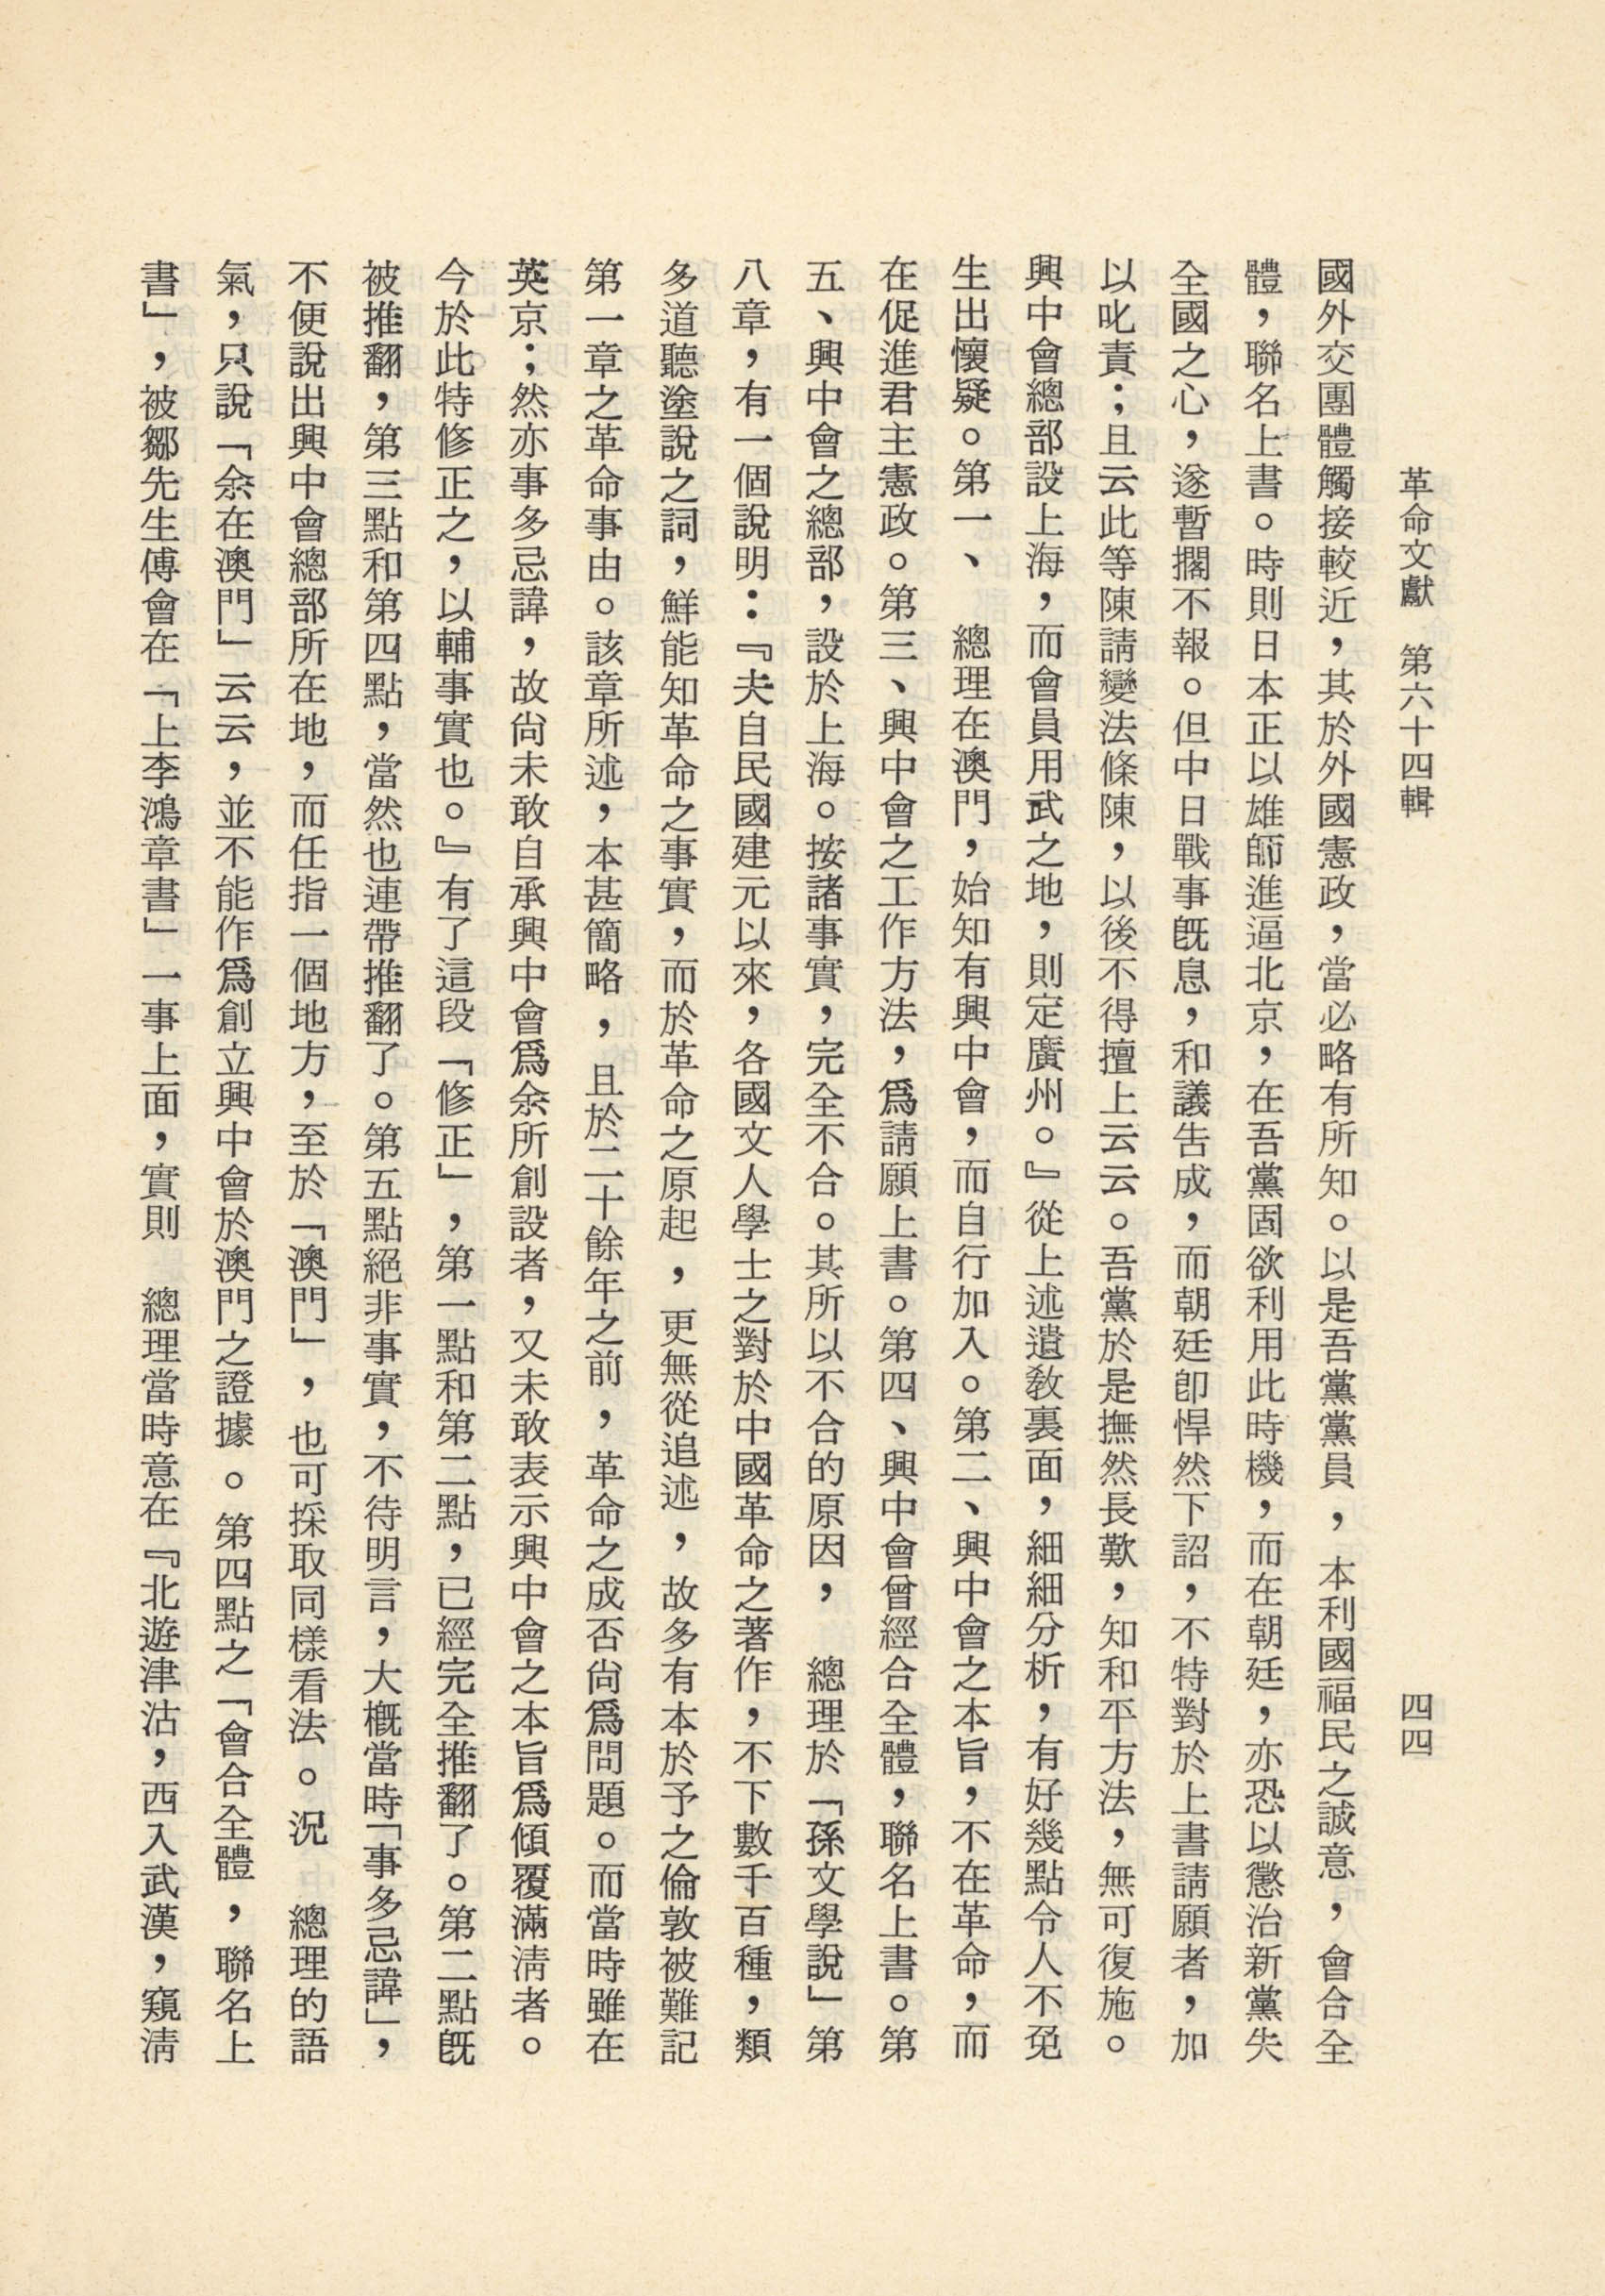 革命文獻　第六十四輯　四四
國外交團體觸接較近，其於外國憲政，當必略有所知。以是吾黨黨員，本利國福民之誠意，會合全
體，聯名上書。時則日本正以雄師進逼北京，在吾黨固欲利用此時機，而在朝廷，亦恐以懲治新黨失
全國之心，遂暫擱不報。但中日戰事旣息，和議告成，而朝廷卽悍然下詔，不特對於上書請願者，加
以叱責；且云此等陳請變法條陳，以後不得擅上云云。吾黨於是撫然長歎，知和平方法，無可復施。
興中會總部設上海，而會員用武之地，則定廣州。』從上述遺敎裏面，細細分析，有好幾點令人不免
生出懷疑。第一、　總理在澳門，始知有興中會，而自行加入。第二、興中會之本旨，不在革命，而
在促進君主憲政。第三、興中會之工作方法，爲請願上書。第四、興中會曾經合全體，聯名上書。第
五、興中會之總部，設於上海。按諸事實，完全不合。其所以不合的原因，　總理於「孫文學說」第
八章，有一個說明：『夫自民國建元以來，各國文人學士之對於中國革命之著作，不下數千百種，類
多道聽塗說之詞，鮮能知革命之事實，而於革命之原起，更無從追述，故多有本於予之倫敦被難記
第一章之革命事由。該章所述，本甚簡略，且於二十餘年之前，革命之成否尙爲問題。而當時雖在
英京；然亦事多忌諱，故尙未敢自承興中會爲余所創設者，又未敢表示興中會之本旨爲傾覆滿淸者。
今於此特修正之，以輔事實也。』有了這段「修正」，第一點和第二點，已經完全推翻了。第二點旣
被推翻，第三點和第四點，當然也連帶推翻了。第五點絕非事實，不待明言，大槪當時「事多忌諱」，
不便說出興中會總部所在地，而任指一個地方，至於「澳門」，也可採取同樣看法。況　總理的語
氣，只說「余在澳門」云云，並不能作爲創立興中會於澳門之證據。第四點之「會合全體，聯名上
書」，被鄒先生傅會在「上李鴻章書」一事上面，實則　總理當時意在『北遊津沽，西入武漢，窺淸